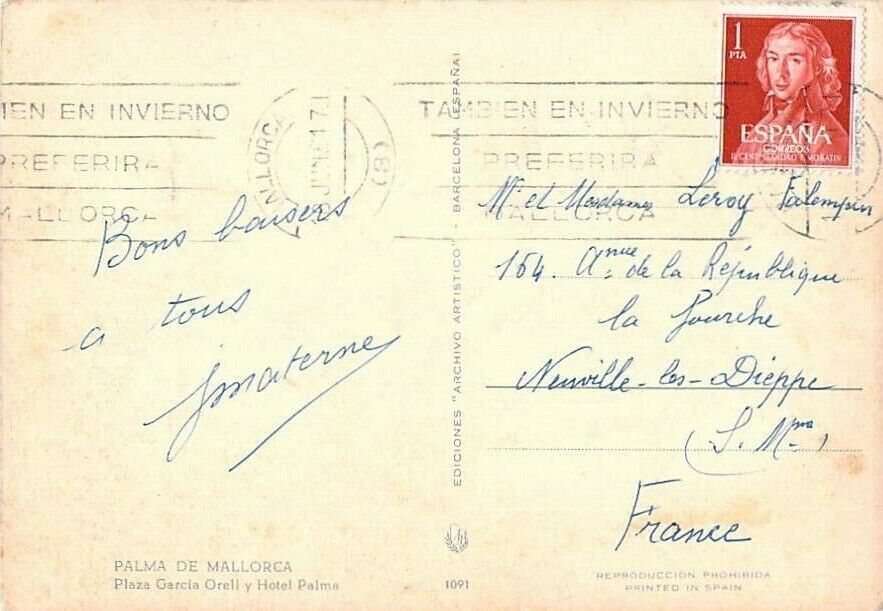 1
PTA
ESPAÑA
CORREOS
TAMBIEN EN INVIERNO
PREFERIRA
MALLORCA
IEN EN INVIERNO
PREFERIRA
MALLORCA
MALLORCA
JUN 61
(8)
Bons baisers
a tous
Mr et Madame Leroy Falempin
164. Anue de la République
la
Neuville-les-Dieppe
(S. Mme)
France
EDICIONES "ARCHIVO ARTISTICO" - BARCELONA (ESPAÑA)
PALMA DE MALLORCA
Plaza Garcia Orell y Hotel Palma
1091
REPRODUCCION PROHIBIDA
PRINTED IN SPAIN